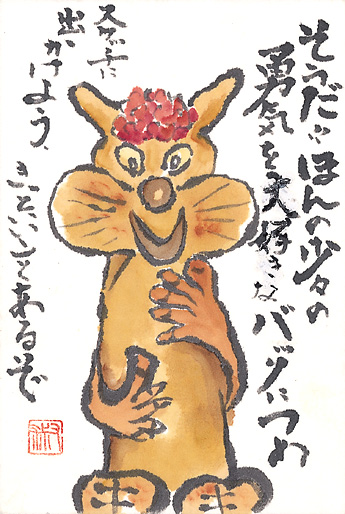 そうだ ほんの少々の
勇気を大好きな
バッグにつめ
スケッチに
出かけよう、
きっといいことあるぞ